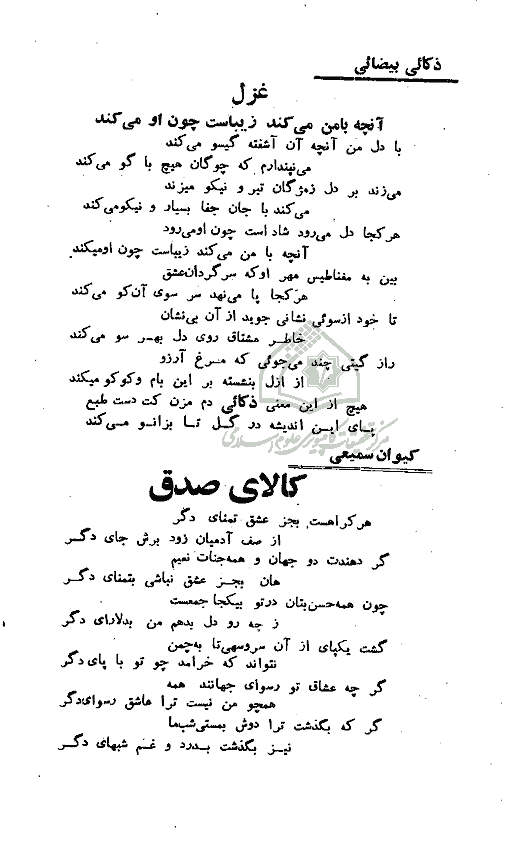 ذکائی بیضائی
غزل
آنچه بامن می‌کند زیباست چون او می‌کند
با دل من آنچه آن آشفته گیسو می‌کند
می‌نپندارم که چوگان هیچ با گو می‌کند
می‌زند بر دل زمژگان تیر و نیکو میزند
می‌کند با جان جفا بسیار و نیکومی‌کند
هرکجا دل می‌رود شاد است چون اومی‌رود
آنچه با من می‌کند زیباست چون اومیکند
بین به مغناطیس مهر اوکه سرگردان‌عشق
هرکجا پا می‌نهد سر سوی آن‌کو می‌کند
تا خود ازسوئی نشانی جوید از آن بی‌نشان
خاطر مشتاق روی دل بهر سو می‌کند
راز گیتی چند می‌جوئی که مرغ آرزو
از ازل بنشسته بر این بام وکوکو میکند
هیچ از این معنی ذکائی دم مزن کت دست طبع
پای این اندیشه در گل تا بزانو می‌کند
مرکز تحقیقات کامپیوتری علوم اسلامی
کیوان سمیعی
کالای صدق
هرکراهست بجز عشق تمنای دگر
از صف آدمیان زود برش جای دگر
گر دهندت دو جهان و همه‌جنات نعیم
هان بجز عشق نباشی بتمنای دگر
چون همه‌حسن‌بتان درتو بیکجا جمعست
ز چه رو دل بدهم من بدلارای دگر
گشت یکپای از آن سروسهی‌تا به‌چمن
نتواند که خرامد چو تو با پای‌دگر
گر چه عشاق تو رسوای جهانند همه
همچو من نیست ترا عاشق رسوای‌دگر
گر که بگذشت ترا دوش بمستی‌شب‌ما
نیز بگذشت بدرد و غم شبهای دگر